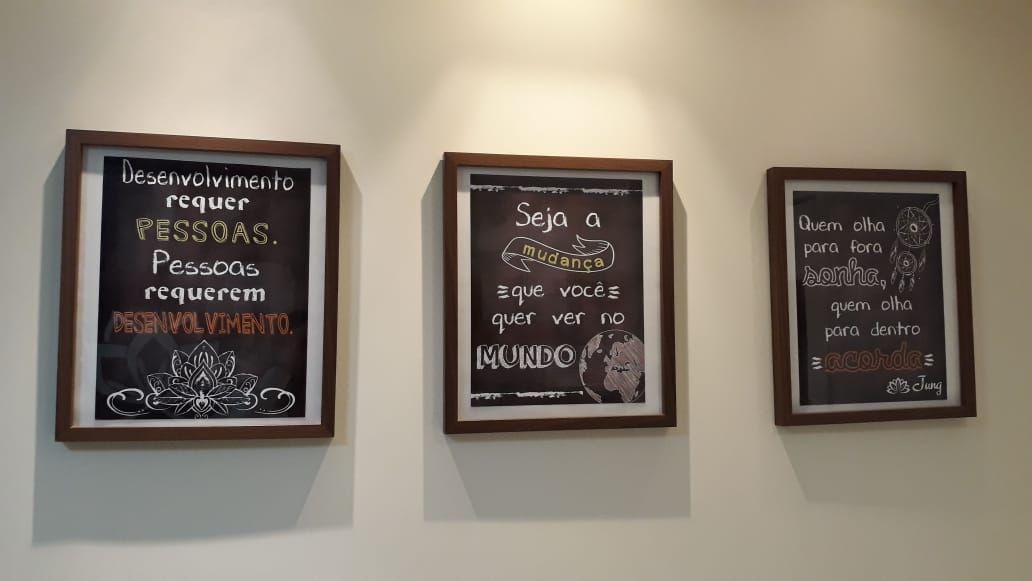 Desenvolvimento
requer
PESSOAS.
Pessoas
requerem
DESENVOLVIMENTO.
Seja a
mudança
que você
quer ver no
MUNDO
Quem olha
para fora
sonha,
quem olha
para dentro
acorda
Jung